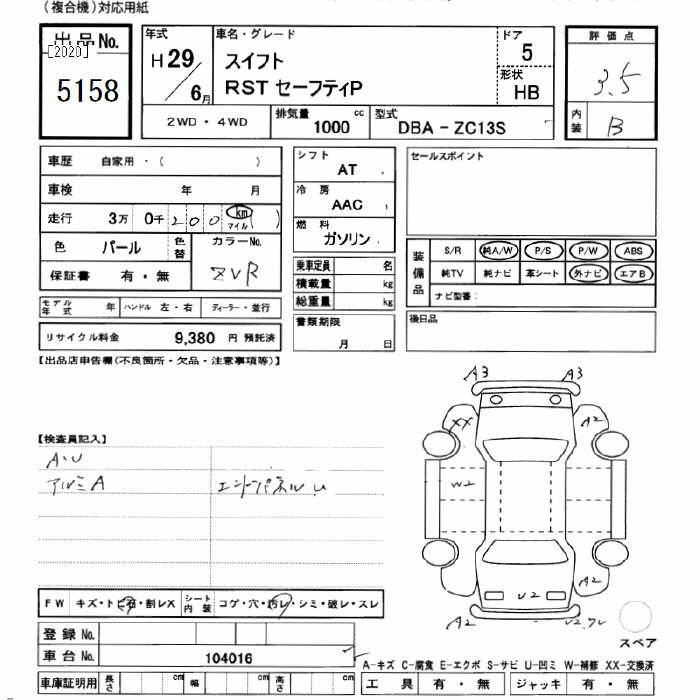 （複合機）対応用紙
出品No.
[2020]
5158
年式
H 29 / 6月
車名・グレード
スイフト
RST セーフティP
ドア
5
形状
HB
評価点
3.5
内装
B
2WD ・ 4WD
排気量 1000 cc
型式 DBA - ZC13S
車歴 自家用・（ ）
車検 年 月
走行 3万 0千 200 km マイル ( )
色 パール 色替 カラーNo. ZVR
保証書 有・無
モデル年式 年 ハンドル 左・右 ディーラー・並行
リサイクル料金 9,380 円 預託済
シフト
AT
冷房
AAC
燃料
ガソリン
乗車定員 名
積載量 kg
総重量 kg
書類期限
月 日
セールスポイント
装備品
S/R 純A/W P/S P/W ABS
純TV 純ナビ 革シート 外ナビ エアB
ナビ型番：
後日品
【出品店申告欄(不良箇所・欠品・注意事項等)】
【検査員記入】
A・U
アルミA
エンジンパネル U
A3 A3
XX A2
W2
A2
U2
A2
FW キズ・トビ石・割レX シート内装 コゲ・穴・汚レ・シミ・破レ・スレ
登録No.
車台No. 104016
スペア
A-キズ C-腐食 E-エクボ S-サビ U-凹ミ W-補修 XX-交換済
車庫証明用 長さ cm 幅 cm 高さ cm
工具 有・無 ジャッキ 有・無